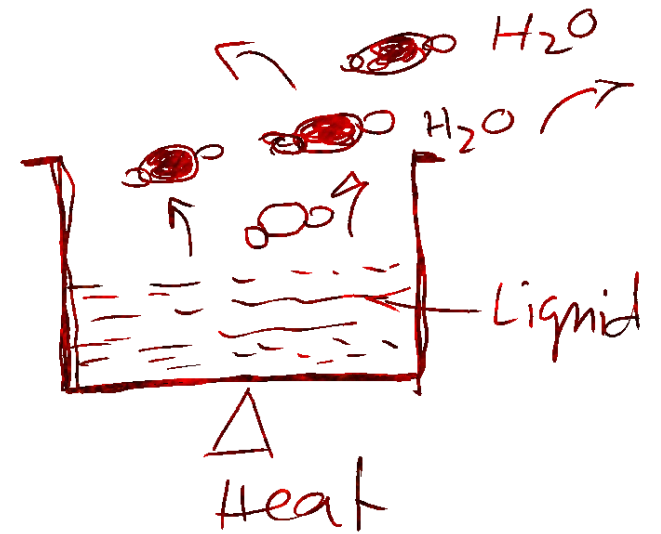 H₂O
H₂O
Liquid
Heat